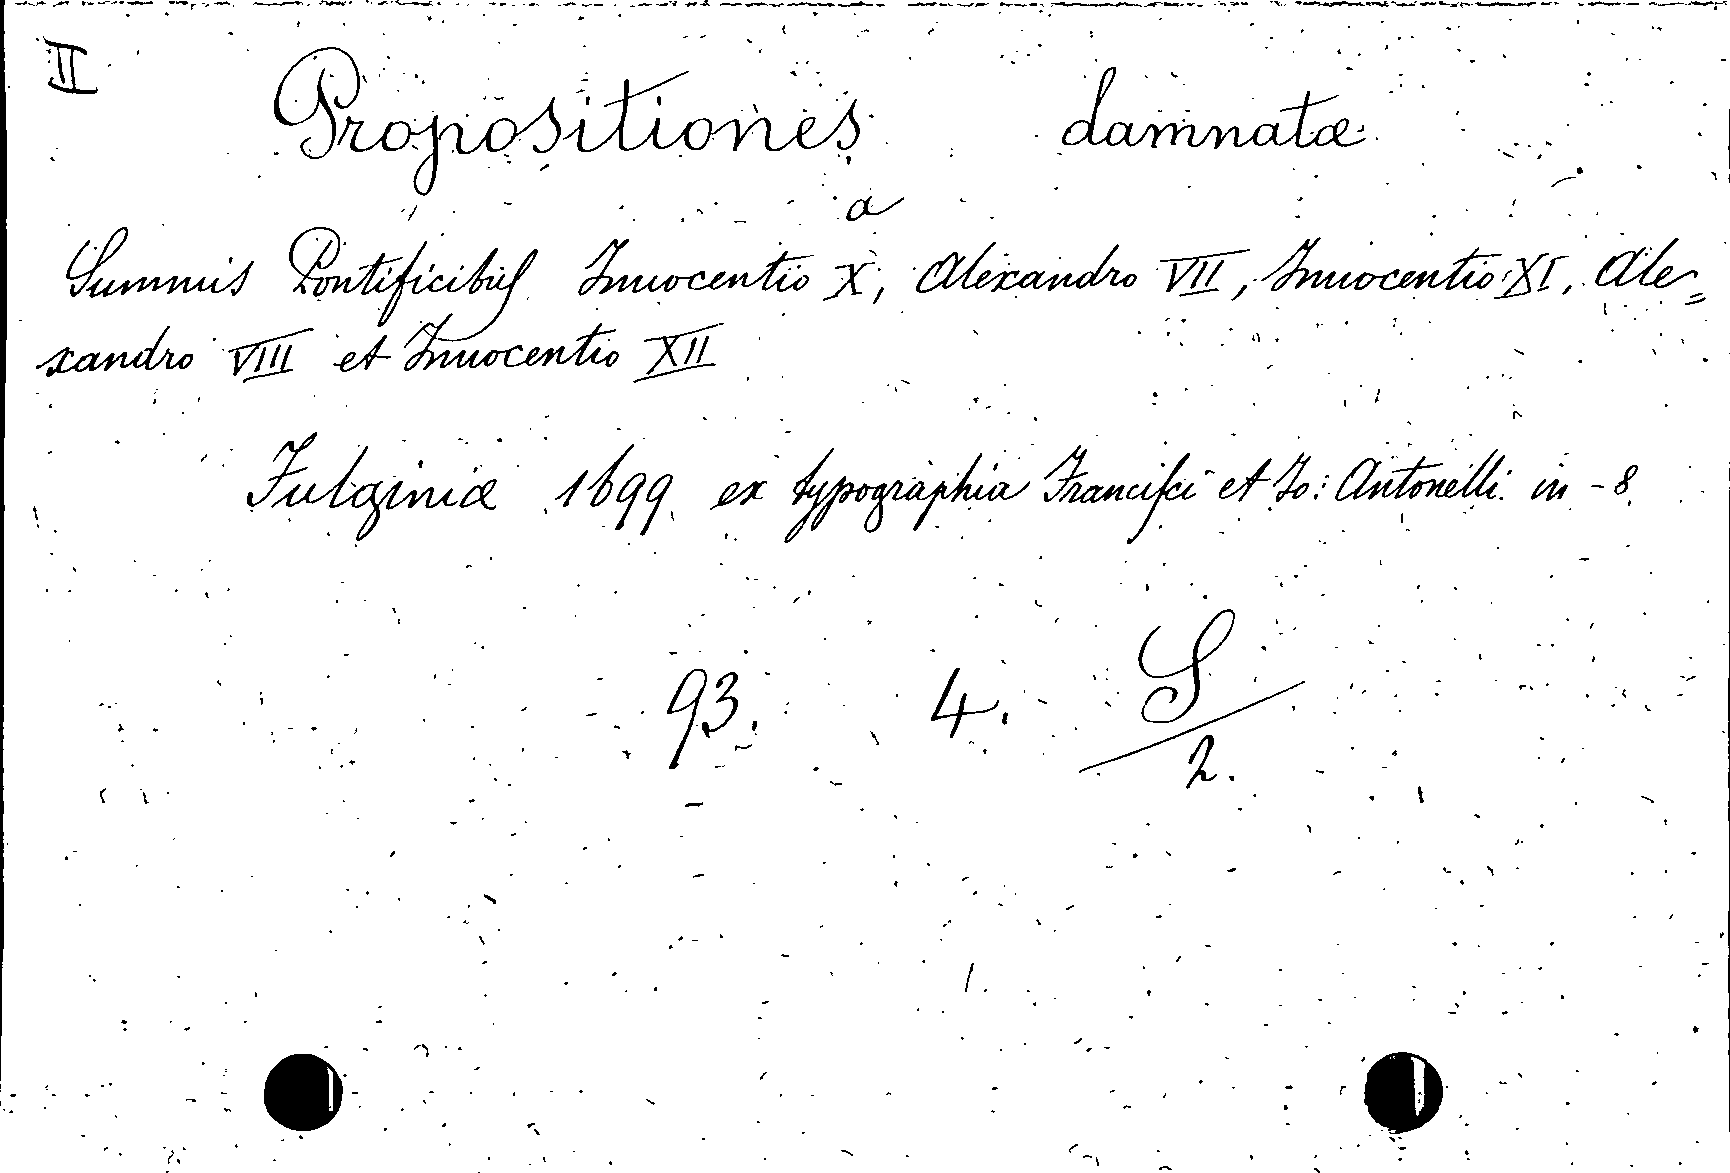 II
Propositiones damnatæ
a
Summis Pontificibus Innocentio X, Alexandro VII, Innocentio XI, Ale=
xandro VIII et Innocentio XII
Fulginiæ 1699 ex typographia Francisci et Jo: Antonelli in-8
93. 4. S/2.